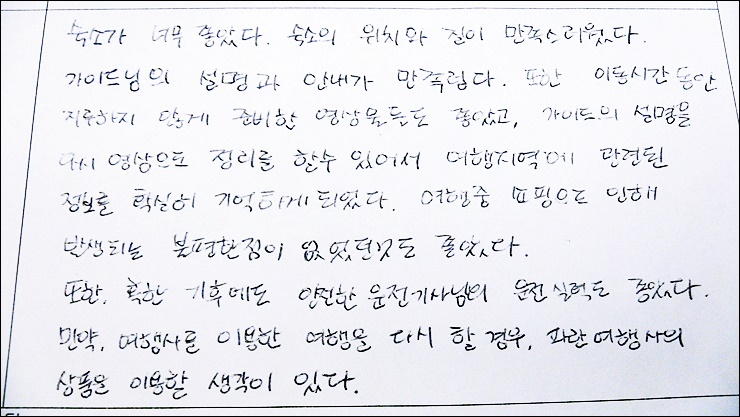 숙소가 너무 좋았다. 숙소의 위치와 질이 만족스러웠다.
가이드님의 설명과 안내가 만족럽다. 또한 이동시간동안
지루하지 않게 준비한 영상물들도 좋았고, 가이드의 설명을
다시 영상으로 정리를 할수 있어서 여행지역에 관련된
정보를 확실히 기억하게 되었다. 여행중 쇼핑으로 인해
발생되는 불평한점이 없었던것도 좋았다.
또한, 혹한 기후에도 안전한 운전기사님의 운전실력도 좋았다.
만약, 여행사를 이용한 여행을 다시 할 경우, 파란여행사의
상품을 이용할 생각이 있다.